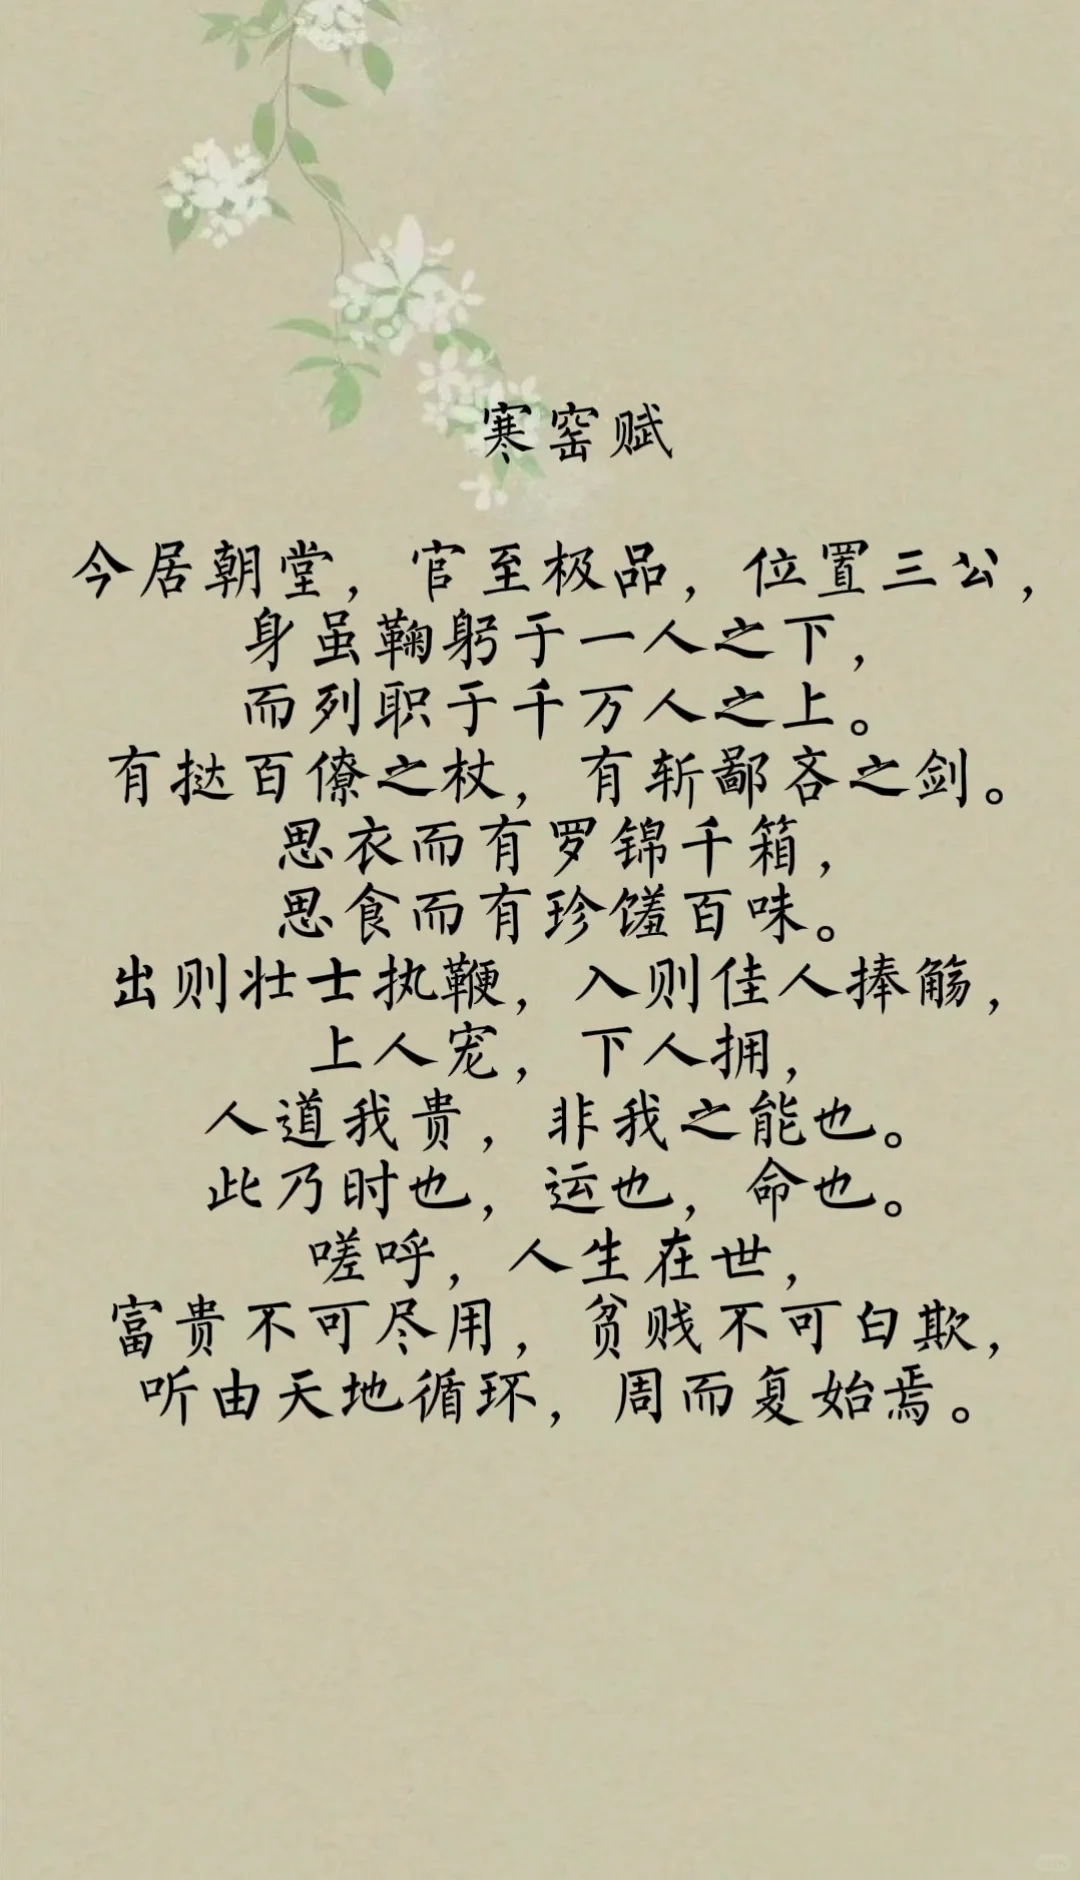 寒窑赋
今居朝堂，官至极品，位置三公，
身虽鞠躬于一人之下，
而列职于千万人之上。
有挞百僚之杖，有斩鄙吝之剑。
思衣而有罗锦千箱，
思食而有珍馐百味。
出则壮士执鞭，入则佳人捧觞，
上人宠，下人拥，
人道我贵，非我之能也。
此乃时也，运也，命也。
嗟呼，人生在世，
富贵不可尽用，贫贱不可自欺，
听由天地循环，周而复始焉。